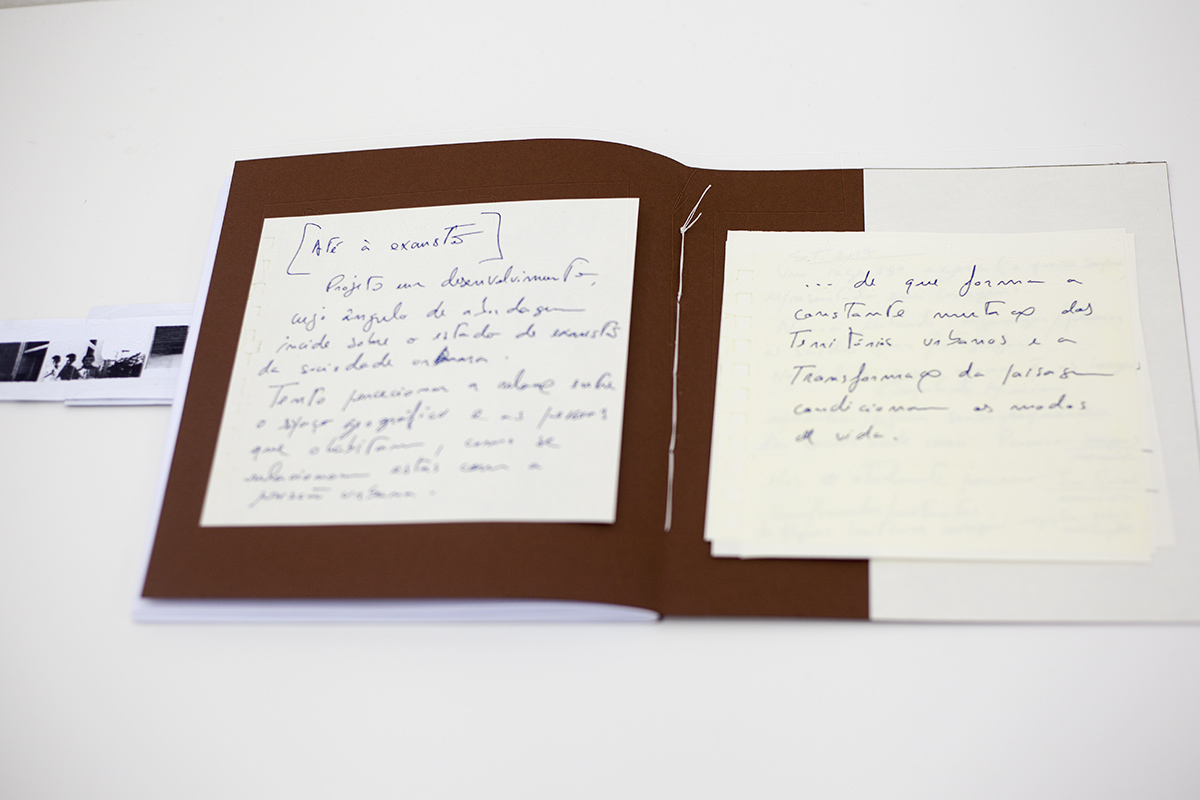 [Até à exaustão]
Projeto em desenvolvimento,
cujo ângulo de abordagem
incide sobre o estado de exaustão
da sociedade
Tento percecionar a relação entre
o espaço geográfico e as pessoas
que o habitam, como se
relacionam estas com a
urbana.
... de que forma a
constante mutação dos
Territórios urbanos e a
Transformação da paisagem,
condicionam os modos
de vida.